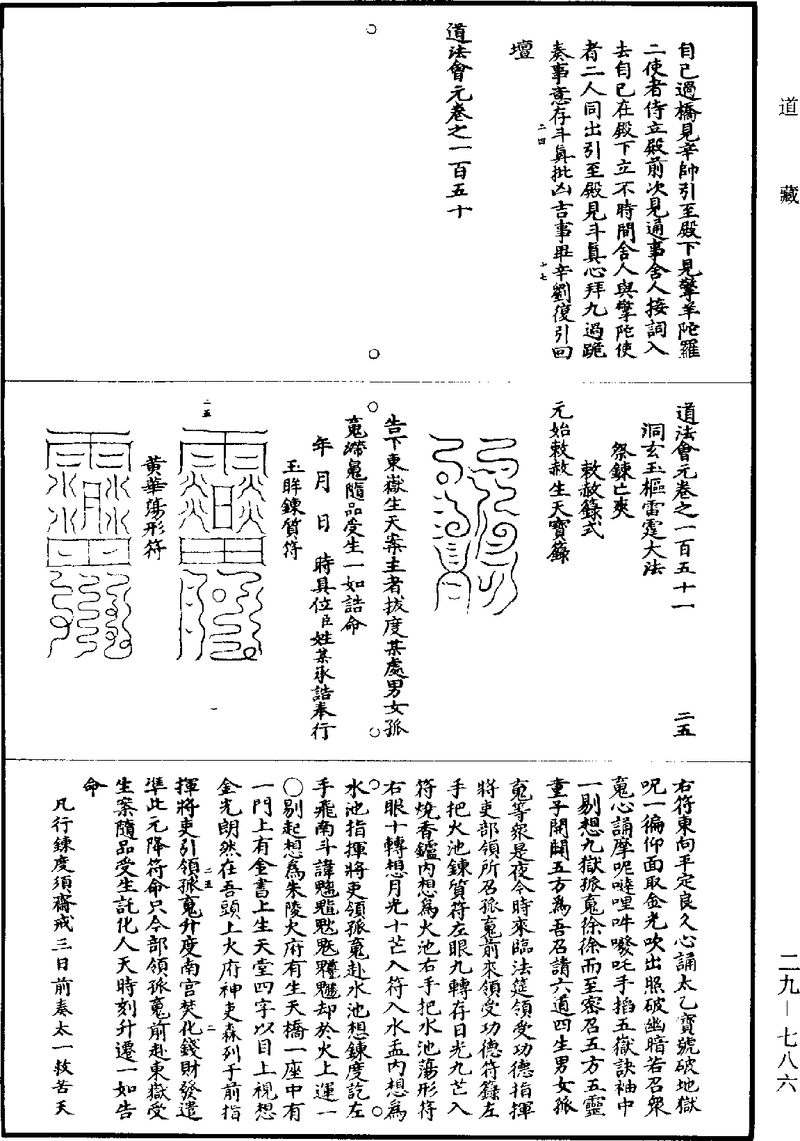 道藏
自己過橋見辛帥引至殿下見擎羊陀羅
二使者侍立殿前次見通事舍人接詞入
去自己在殿下立不時間舍人與擎陀使
者二人同出引至殿見斗真心拜九過跪
奏事意存斗真批凶吉事畢辛劉復引回
壇
二四
十七
道法會元卷之一百五十
道法會元卷之一百五十一
二五
洞玄玉樞雷霆大法
祭鍊亡爽
敕赦籙式
元始敕赦生天寶籙
告下東嶽生天案主者拔度某處男女孤
䰟滯魄隨品受生一如誥命
年月日時具位臣姓某承誥奉行
玉眸鍊質符
二五
黃華蕩形符
右符東向平定良久心誦太乙寶號破地獄
呪一徧仰面取金光吹出照破幽暗若召衆
䰟心誦摩呢噠哩吽㗶吒手掐五嶽訣袖中
一剔想九獄孤䰟徐徐而至密召五方五靈
童子開闢五方為吾召請六道四生男女孤
䰟等衆是夜今時來臨法筵領受功德指揮
將吏部領所召孤䰟前來領受功德符籙左
手把火池鍊質符左眼九轉存日光九芒入
符燒香鑪內想為火池右手把水池蕩形符
右眼十轉想月光十芒入符入水盂內想為
水池指揮將吏領孤䰟赴水池想鍊度訖左
手飛南斗諱魒䰢䰡魓䰱魕却於火上運一
○剔起想為朱陵火府有生天橋一座中有
一門上有金書上生天堂四字以目上視想
金光朗然在吾頭上火府神吏森列于前指
揮將吏引領孤䰟升度南宮焚化錢財發遣
準此元降符命只今部領孤䰟前赴東嶽受
生案隨品受生託化人天時刻升遷一如告
命
二五
二
凡行鍊度須齋戒三日前奏太一救苦天
二九—七八六